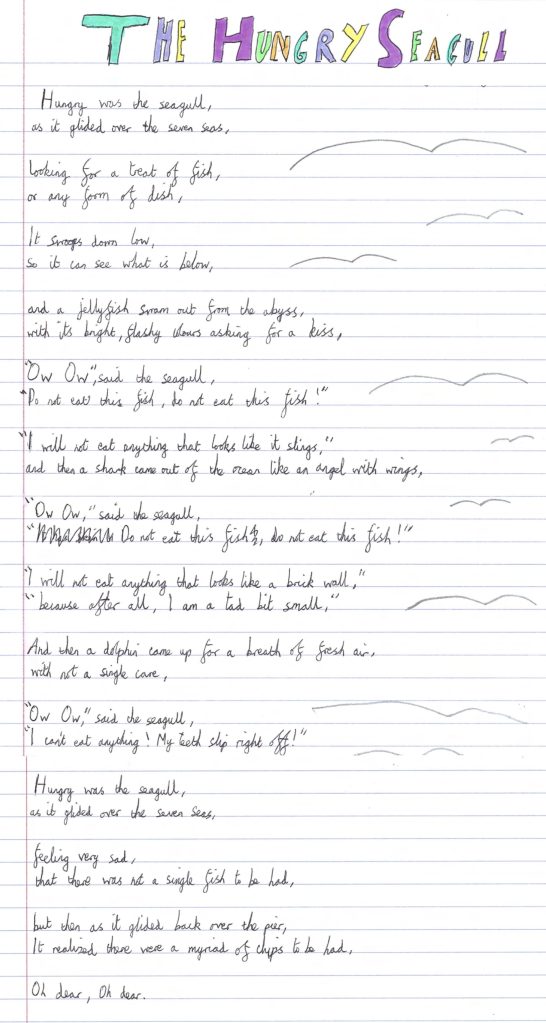 THE HUNGRY SEAGULL
Hungry was the seagull,
as it glided over the seven seas,
looking for a treat of fish,
or any form of dish,
It swoops down low,
so it can see what is below,
and a jellyfish swam out from the abyss,
with its bright, flashy colours asking for a kiss,
"Ow Ow", said the seagull,
"Do not eat this fish, do not eat this fish!"
"I will not eat anything that looks like it stings,"
and then a shark came out of the ocean like an angel with wings,
"Ow Ow," said the seagull,
"Do not eat this fish, do not eat this fish!"
"I will not eat anything that looks like a brick wall,"
"because after all, I am a tad bit small,"
And then a dolphin came up for a breath of fresh air,
with not a single care,
"Ow Ow," said the seagull,
"I can't eat anything! My teeth slip right off!"
Hungry was the seagull,
as it glided over the seven seas,
feeling very sad,
that there was not a single fish to be had,
but then as it glided back over the pier,
It realized there were a myriad of chips to be had,
Oh dear, Oh dear.